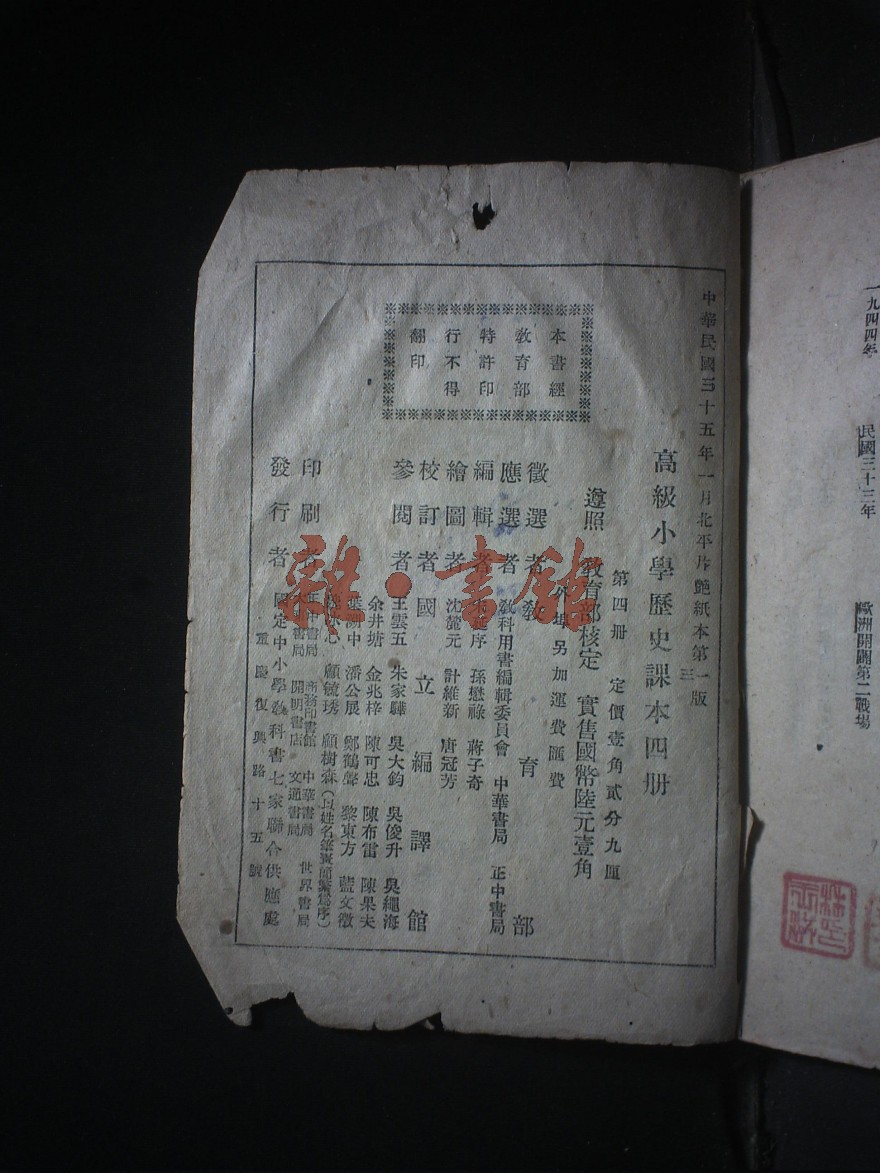 一九四四年　民國三十三年　歐洲開闢第二戰場
中華民國三十五年一月北平
紙本第一版
三
高級小學歷史課本四册
第四册　定價壹角貳分九厘
遵照　教育部核定　實售國幣陸元壹角
外埠另加運費匯費
本書經
教育部
特許印
行不得
翻印
徵選者　教育部
應選者　教科用書編輯委員會　中華書局　正中書局
編輯者　序　孫懋祿　蔣子奇
繪圖者　沈麓元　計維新　唐冠芳
校訂者　國立編譯館
參閱者　王雲五　朱家驊　吳大鈞　吳俊升　吳繩海
余井塘　金兆梓　陳可忠　陳布雷　陳果夫
葉溯中　潘公展　鄭鶴聲　黎東方　藍文徵
心　顧毓琇　顧樹森（以姓名筆畫簡繁爲序）
印刷者　正中書局　商務印書館　中華書局　世界書局
書局　開明書店　文通書局
發行者　國定中小學教科書七家聯合供應處
重慶復興路十五號
雜·書館